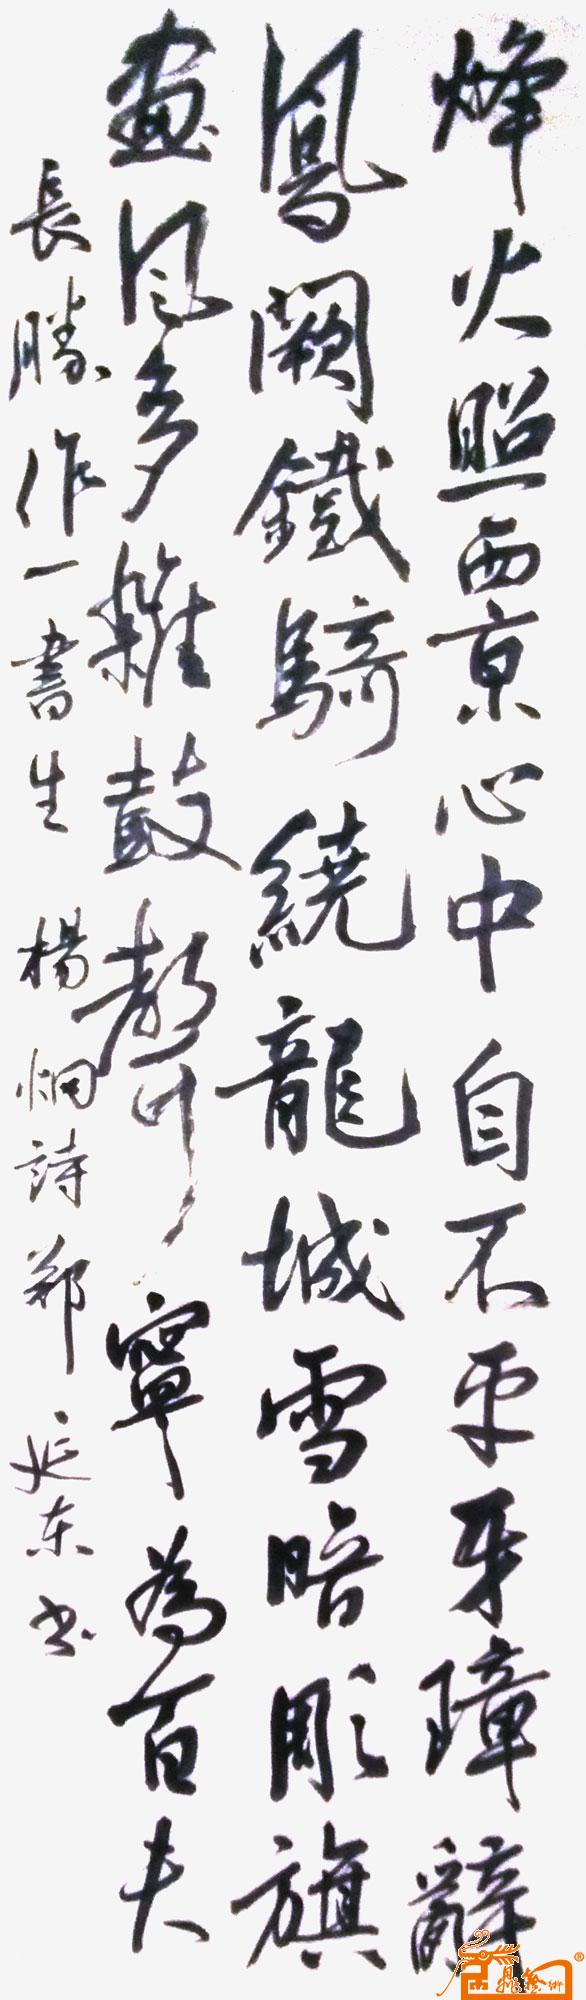 烽火照西京心中自不平牙璋辭
鳳闕鐵騎繞龍城雪暗彫旗
畫風多雜鼓聲寧為百夫
長勝作一書生 楊炯詩鄭延东书